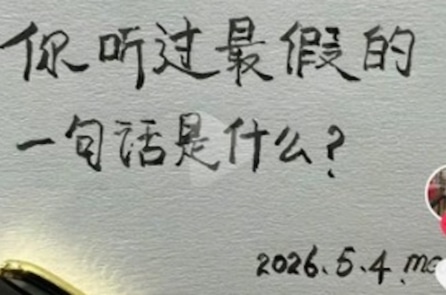 你听过最假的
一句话是什么?
2026.5.4.